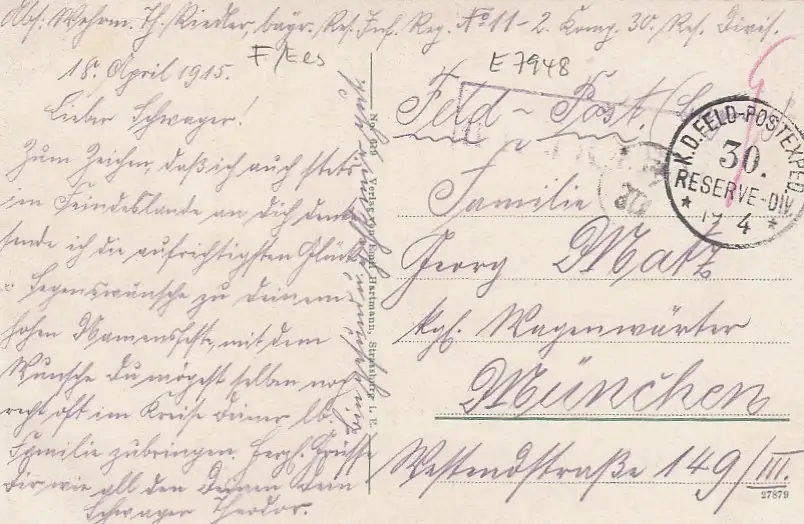 Abs: Wehrm. Th. Riedler, bayr. Res. Inf. Reg. No 11 - 2. Komp. 30. Res. Divis.
F/Els
E 7948
18. April 1915.
Lieber Schwager!
Zum Zeichen, daß ich auch stets
im Feindeslande an dich denke
sende ich die aufrichtigsten Glück-
u. Segenswünsche zu deinem
hohen Namensfeste, mit dem
Wunsche du mögest selben noch
recht oft im Kreise deiner lb.
Familie zubringen. Herzl. Grüsse
dir wie all den Deinen dein
Schwager Theodor.
No. 619 Verlag von Emil Hartmann, Strassburg i. E.
Feld-Post.
K.D. FELD-POSTEXPED.
30.
RESERVE-DIV.
* 19 4 *
Familie
Georg Matz
kgl. Wagenwärter
München
Westendstraße 149/III.
27879